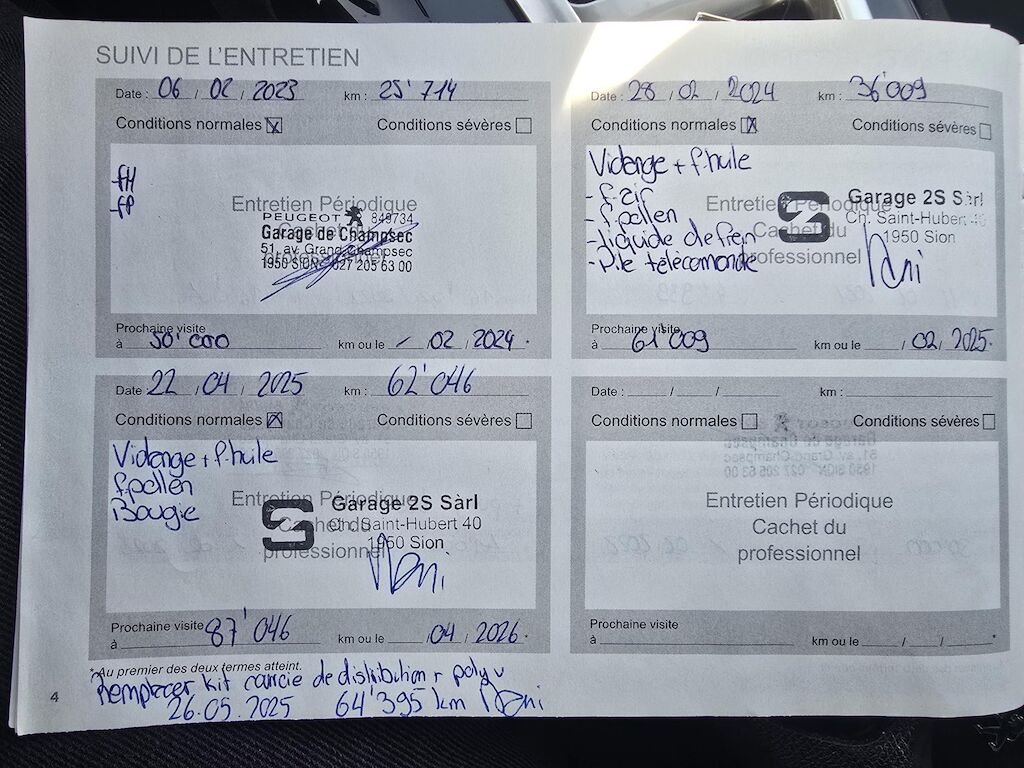 SUIVI DE L'ENTRETIEN
Date : 06 / 02 / 2023 km : 25'714
Conditions normales Conditions sévères
fH
fP
Entretien Périodique
Cachet du
professionnel
PEUGEOT 849734
Garage de Champsec
51, av. Grand Champsec
1950 SION 027 205 63 00
Prochaine visite
à 50'000 km ou le - / 02 / 2024 *
Date : 28 / 02 / 2024 km : 36'009
Conditions normales Conditions sévères
Vidange + f.huile
- f.air
- f.pollen
- liquide de frein
- Pile télécomande
Entretien Périodique
Cachet du
professionnel
Garage 2S Sàrl
Ch. Saint-Hubert 40
1950 Sion
Prochaine visite
à 61'009 km ou le / 02 / 2025 *
Date : 22 / 04 / 2025 km : 62'046
Conditions normales Conditions sévères
Vidange + f.huile
f.pollen
Bougie
Entretien Périodique
Cachet du
professionnel
Garage 2S Sàrl
Ch. Saint-Hubert 40
1950 Sion
Prochaine visite
à 87'046 km ou le / 04 / 2026 *
Date : / / km :
Conditions normales Conditions sévères
Entretien Périodique
Cachet du
professionnel
Prochaine visite
à km ou le / / *
* Au premier des deux termes atteint.
Remplacer kit courroie de distribution + poly v
26.05.2025 64'395 km
4